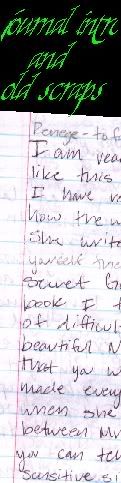 journal intro
and
old scraps
I am read
like this
I have re
how the w
She write
yourself the
Secret Gr
book I t
of difficult
beautiful N
that you w
made every
when she
between Mr
you can tel
sensitive si